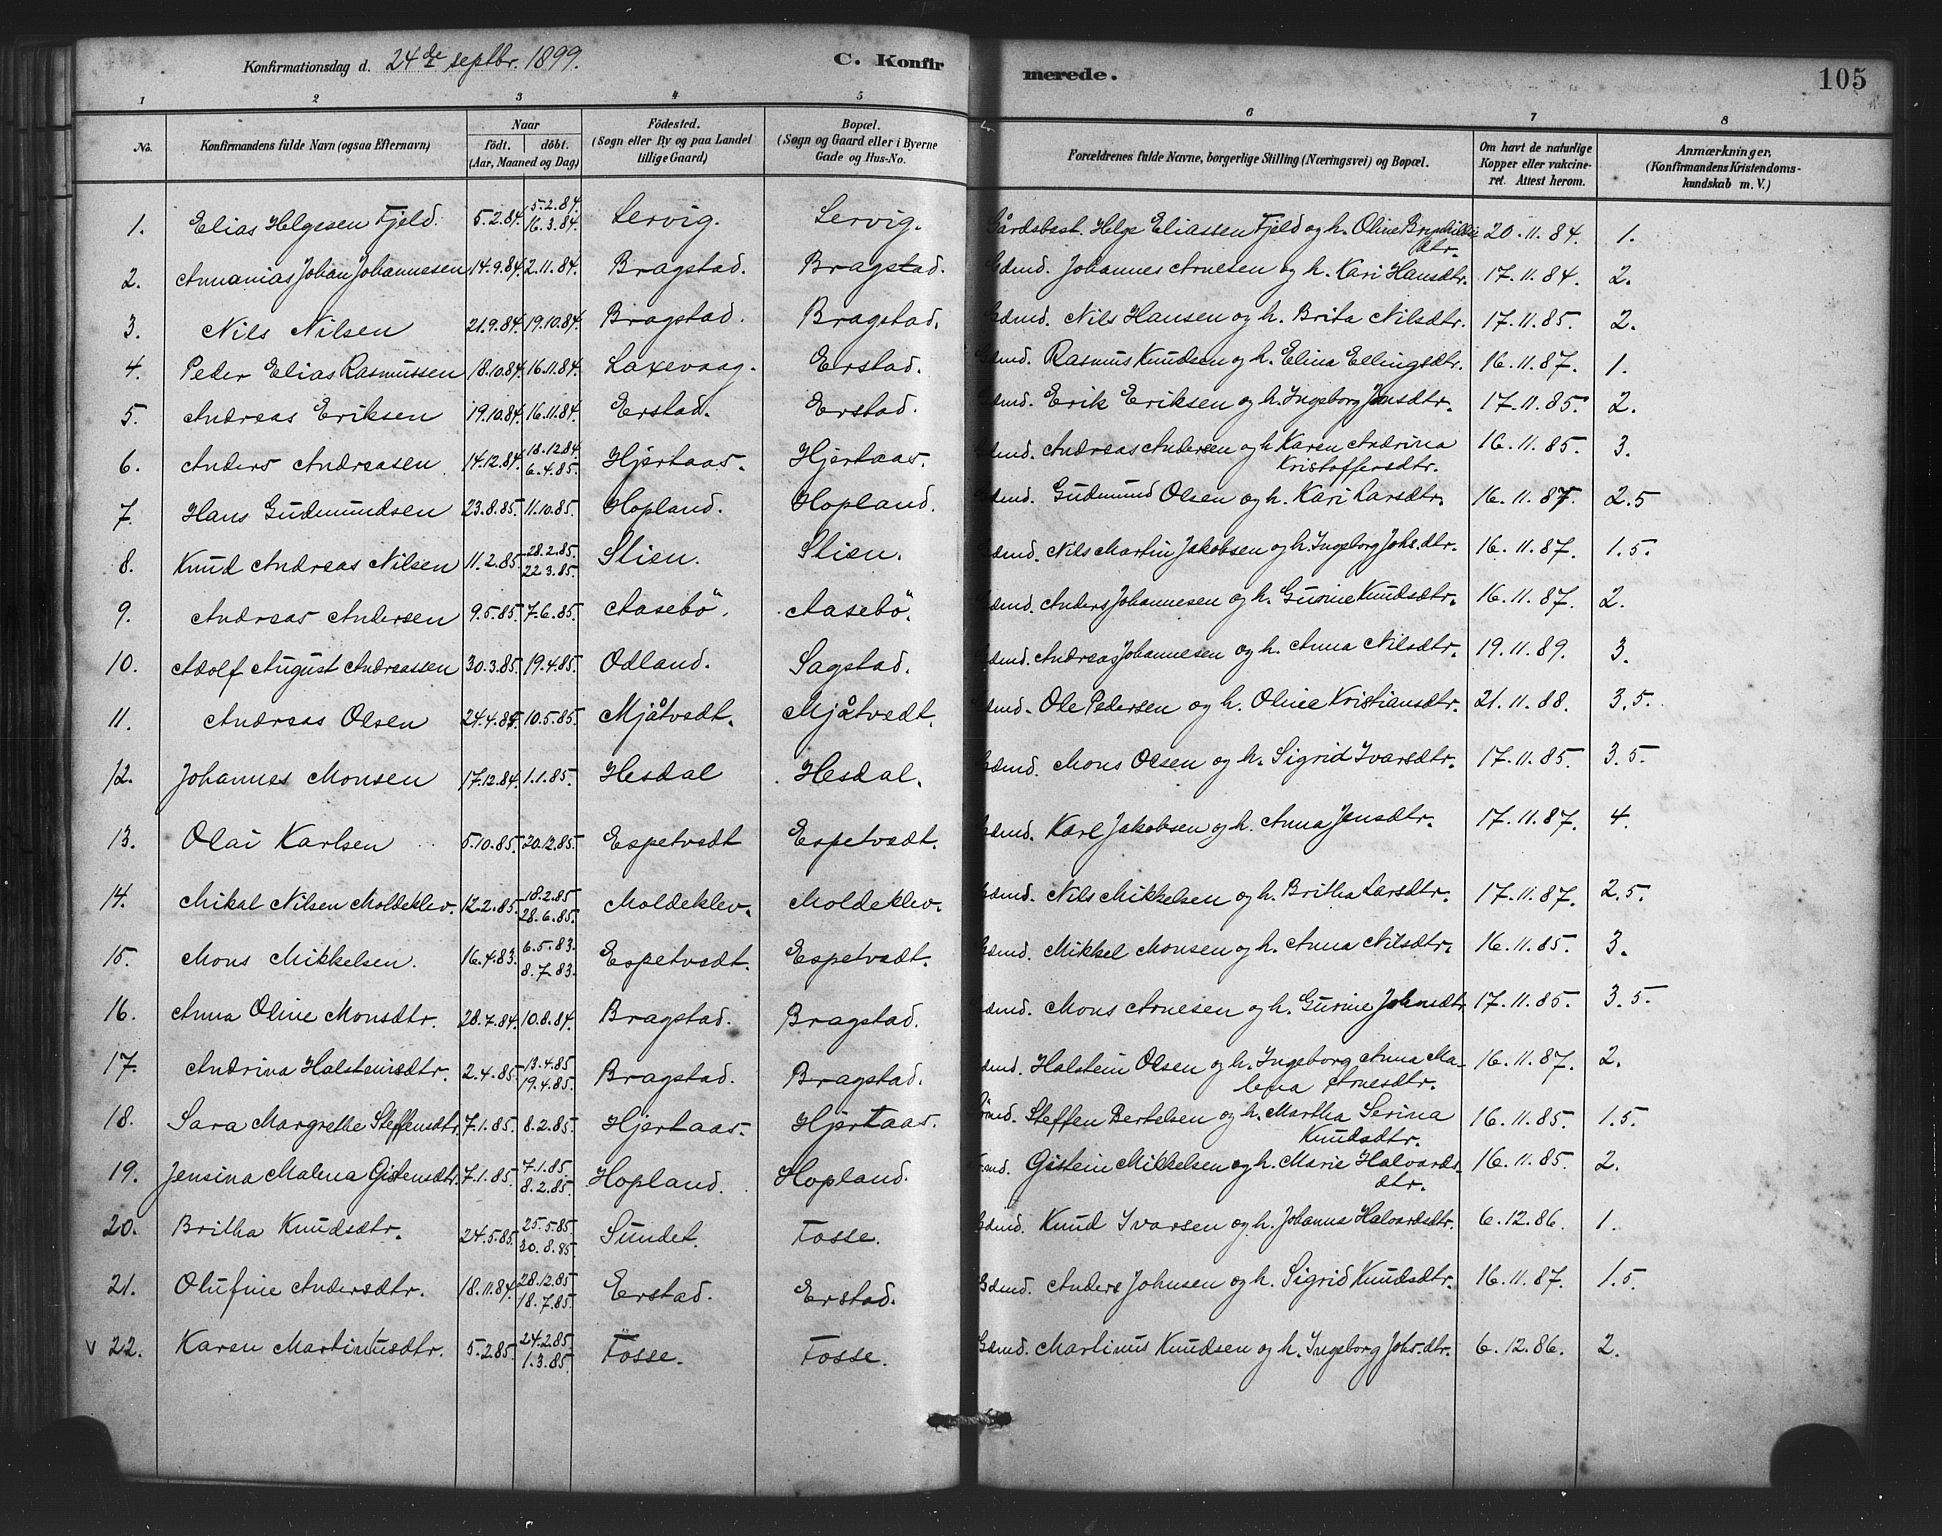 Konfirmationsdag d. 24de septbr. 1899. C. Konfirmerede. 105
1 2 3 4 5 6 7 8
No. Konfirmandens fulde Navn (ogsaa Efternavn) Naar født. døbt. (Aar, Maaned og Dag) Fødested. (Sogn eller By og paa Landet tillige Gaard) Bopæl. (Sogn og Gaard eller i Byerne Gade og Hus-No. Forældrenes fulde Navne, borgerlige Stilling (Næringsvei) og Bopæl. Om havt de naturlige Kopper eller vakcineret. Attest herom. Anmærkninger, (Konfirmandens Kristendomskundskab m. V.)
1. Elias Helgesen Fjeld. 5.2.84. 5.2.84. 16.3.84. Lervig. Lervig. Gårdsbest. Helge Eliassen Fjeld og h. Oline dtr. 20.11.84. 1.
2. Annanias Johan Johannesen 14.9.84. 2.11.84. Bragstad. Bragstad. Gdmd. Johannes Arnesen og h. Kari Hansdtr. 17.11.84. 2.
3. Nils Nilsen 21.9.84. 19.10.84. Bragstad. Bragstad. Gdmd. Nils Hansen og h. Brita Nilsdtr. 17.11.85. 2.
4. Peder Elias Rasmussen 18.10.84. 16.11.84. Laxevaag. Erstad. Gdmd. Rasmus Knudsen og h. Elina Ellingsdtr. 16.11.87. 1.
5. Andreas Eriksen 19.10.84. 16.11.84. Erstad. Erstad. Gdmd. Erik Eriksen og h. Ingeborg Jensdtr. 17.11.85. 2.
6. Anders Andreasen 14.12.84. 18.12.84. 6.4.85. Hjertaas. Hjertaas. Gdmd. Andreas Andersen og h. Karen Andrina Kristoffersdtr. 16.11.85. 3.
7. Hans Gudmundsen 23.8.85. 11.10.85. Hopland. Hopland. Gdmd. Gudmund Olsen og h. Kari Larsdtr. 16.11.87. 2.5
8. Knud Andreas Nilsen 11.2.85. 28.2.85. 22.3.85. Slien. Slien. Gdmd. Nils Martin Jakobsen og h. Ingeborg Johs.dtr. 16.11.87. 1.5.
9. Andreas Andersen 9.5.85. 7.6.85. Aasebö. Aasebö. Gdmd. Anders Johannesen og h. Gurine Knudsdtr. 16.11.87. 2.
10. Adolf August Andreassen 30.3.85. 19.4.85. Odland. Sagstad. Gdmd. Andreas Johannesen og h. Anna Nilsdtr. 19.11.89. 3.
11. Andreas Olsen 24.4.85. 10.5.85. Mjåtvedt. Mjåtvedt. Gdmd. Ole Pedersen og h. Oline Kristiansdtr. 21.11.88. 3.5.
12. Johannes Monsen 17.12.84. 1.1.85. Hesdal Hesdal. Gdmd. Mons Olsen og h. Sigrid Ivarsdtr. 17.11.85. 3.5.
13. Olai Karlsen 5.10.85. 20.12.85. Espetvedt Espetvedt. Gdmd. Karl Jakobsen og h. Anna Jensdtr. 17.11.87. 4.
14. Mikal Nilsen Moldeklev. 12.2.85. 18.2.85 28.6.85. Moldeklev. Moldeklev. Gdmd. Nils Mikkelsen og h. Britha Larsdtr. 17.11.87. 2.5.
15. Mons Mikkelsen. 16.4.83. 6.5.83. 8.7.83. Espetvedt. Espetvedt. Gdmd. Mikkel Monsen og h. Anna Nilsdtr. 16.11.85. 3.
16. Anna Oline Monsdtr. 28.7.84. 10.8.84. Bragstad. Bragstad. Gdmd. Mons Arnesen og h. Gurine Johnsdtr. 17.11.85. 3.5.
17. Andrina Halsteinsdtr. 2.4.85. 13.4.85 19.4.85. Bragstad. Bragstad. Gdmd. Halstein Olsen og h. Ingeborg Anna Malena Arnesdtr. 16.11.87. 2.
18. Sara Margrethe Steffensdtr. 7.1.85. 8.2.85. Hjertaas. Hjertaas. Steffen Bertelsen og h. Martha Serina Knudsdtr. 16.11.85. 1.5.
19. Jensina Malena Gisteinsdtr. 7.1.85. 7.1.85. 8.2.85. Hopland. Hopland. Gistein Mikkelsen og h. Marie Halvardsdtr. 16.11.85. 2.
20. Britha Knudsdtr. 24.5.85. 25.5.85 30.8.85 Sundet. Fosse. Gdmd. Knud Ivarsen og h. Johanna Halvardsdtr. 6.12.86. 1.
21. Olufine Andersdtr. 18.11.84. 28.12.85 18.7.85. Erstad. Erstad. Gdmd. Anders Johnsen og h. Sigrid Knudsdtr. 16.11.87. 1.5.
v 22. Karen Martinusdtr. 5.2.85. 24.2.85. 1.3.85. Fosse. Fosse. Gdmd. Martinus Knudsen og h. Ingeborg Johs.dtr. 6.12.86. 2.